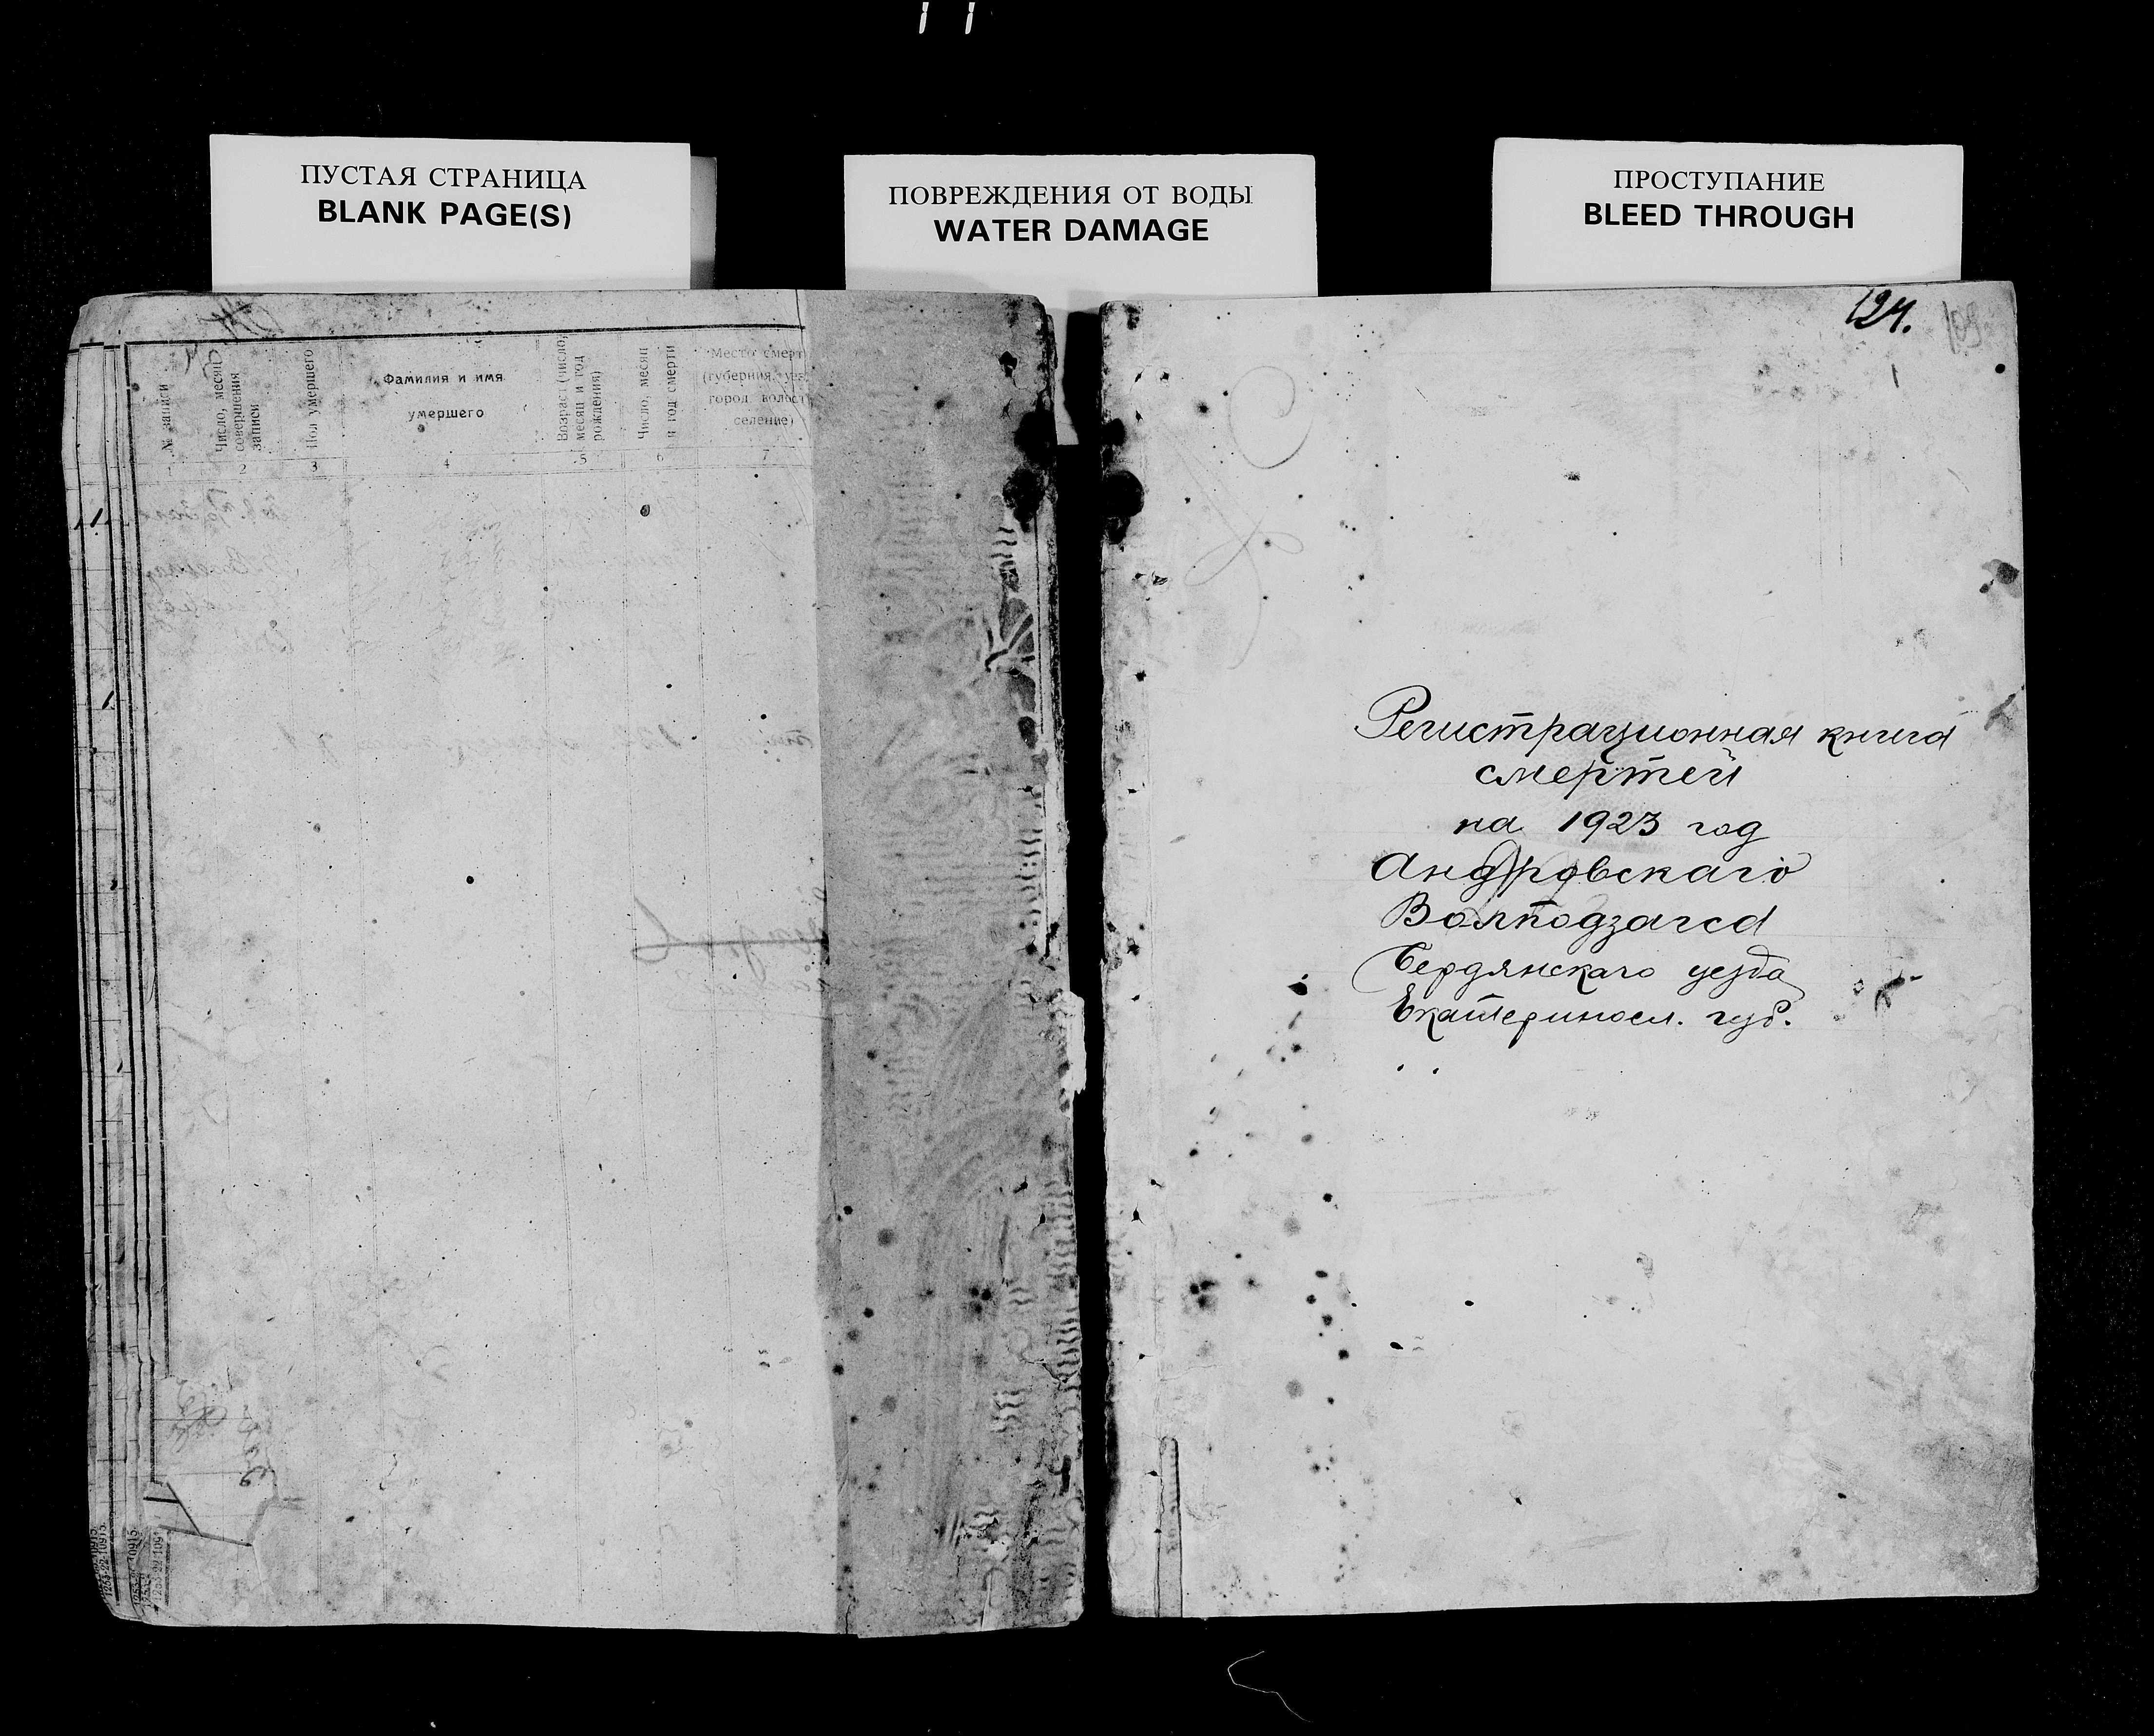 ПУСТАЯ СТРАНИЦА
BLANK PAGE(S)
ПОВРЕЖДЕНИЯ ОТ ВОДЫ
WATER DAMAGE
ПРОСТУПАНИЕ
BLEED THROUGH
№ записи
Число, месяц
совершения
записи
Пол умершего
Фамилия и имя
умершего
Возраст (число,
месяц и год
рождения)
Число, месяц
и год смерти
Место смерт
(губерния, уез
город волост
селение)
1 2 3 4 5 6 7
124.
Регистрационная книга
смертей
на 1923 год
Андровскаго
Волподзагса
Бердянскаго уезда
Екатериносл. губ.